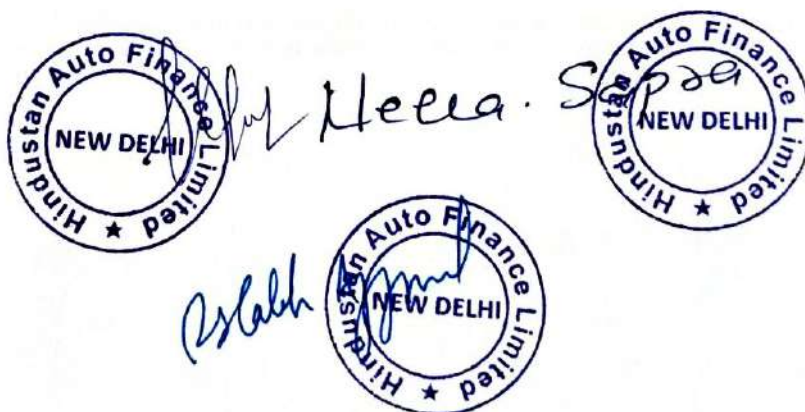 Hindustan Auto Finance Limited ★
NEW DELHI
Sapra
Hindustan Auto Finance Limited ★
NEW DELHI
Hindustan Auto Finance Limited ★
NEW DELHI